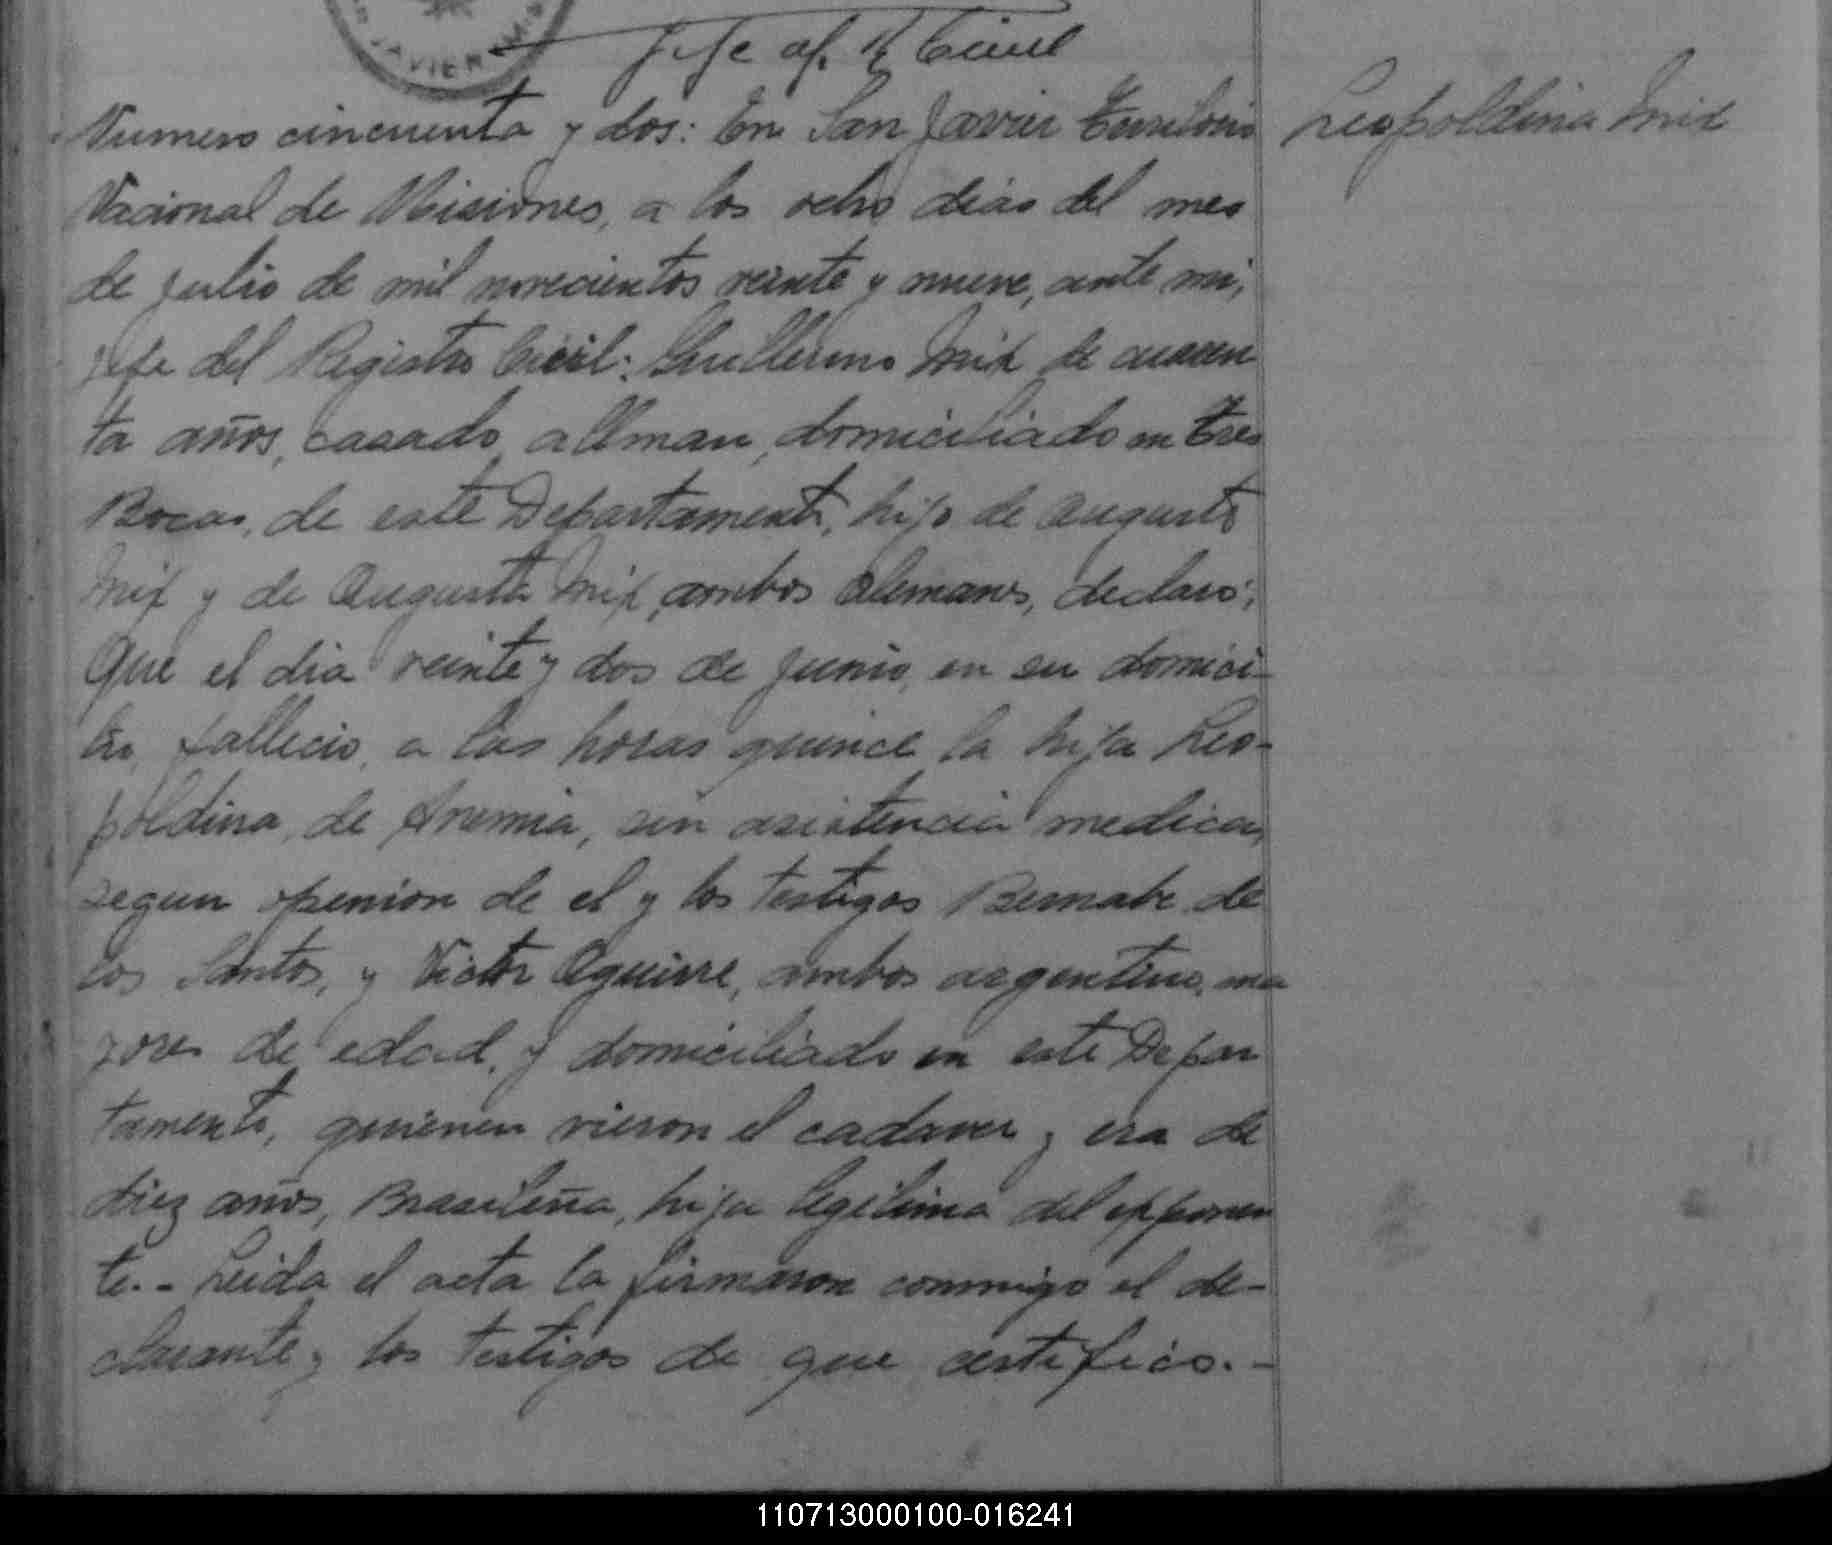 JAVIER
Jefe of. R. Civil
Numero cincuenta y dos: En San Javier Territorio
Leopoldina Mix
Nacional de Misiones, a los ocho dias del mes
de julio de mil novecientos veinte y nueve, ante mi,
jefe del Registro Civil: Guillermo Mix de cuaren
ta años, casado, alleman, domiciliado en Tres
Bocas, de este Departamento, hijo de Augusto
Mix y de Augusta Mix, ambos alemanes, declaró;
Que el dia veinte y dos de junio, en su domici-
lio, fallecio, a las horas quince la hija Leo-
poldina, de Anemia, sin asistencia medica,
segun openion de el y los testigos Bernabe de
los Santos, y Victor Aguirre, ambos argentino, ma
yores de edad, y domiciliado en este Depar
tamento, quienen vieron el cadaver y era de
diez años, Brasileña, hija legitima del exponen
te.- Leida el acta la firmaron conmigo el de-
clarante y los testigos de que certifico.-
110713000100-016241